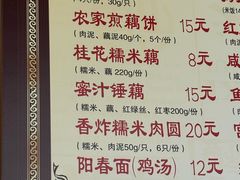 农家煎藕饼 15元
（肉泥、藕泥40g/个，5个/份）
桂花糯米藕 8元
（糯米、藕 220g/份）
蜜汁锤藕 15元
（糯米、藕、红绿丝、红枣200g/份）
香炸糯米肉圆 20元
（糯米、肉泥50g/只，6只/份）
阳春面（鸡汤） 12元